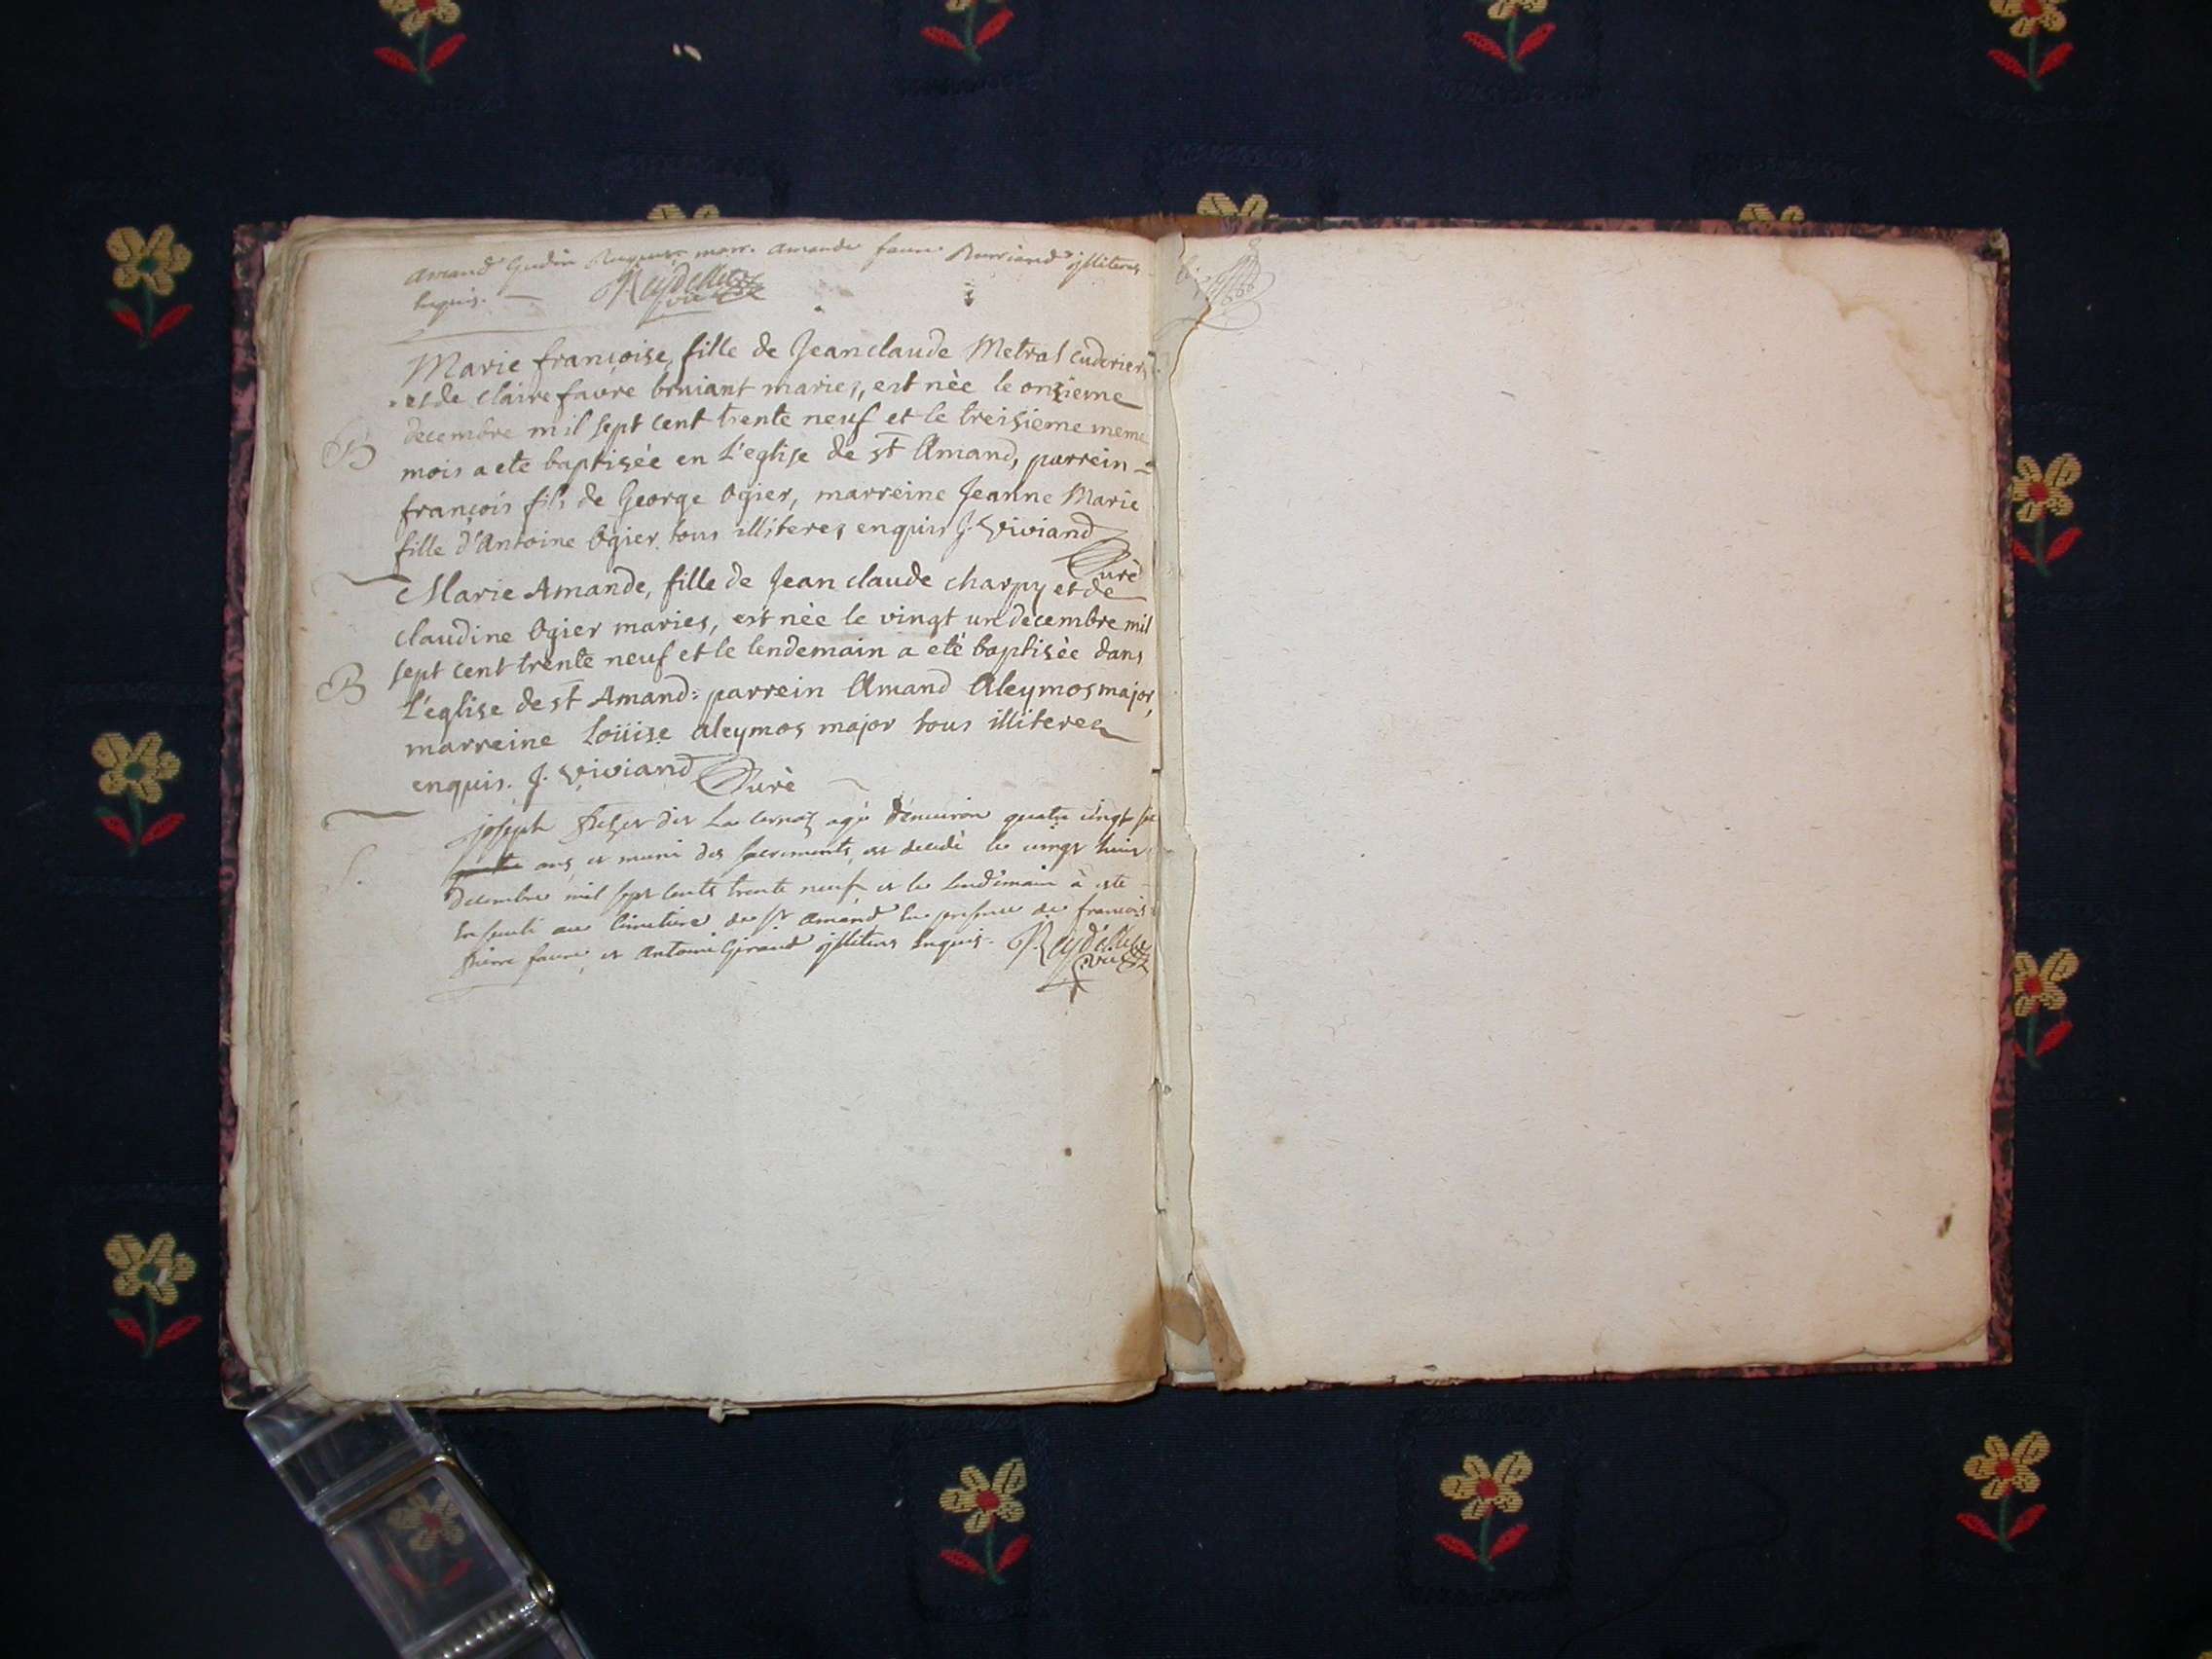 amand Gudin marr. amande faure illiteres
enquis. Reydellet vic
Marie françoise, fille de Jeanclaude Metral cuderier
et de claire favre bruiant maries, est nèe le onzieme
B decembre mil sept cent trente neuf et le treisieme meme
mois a ete baptisèe en L'eglise de st Amand, parrein
françois fils de George Ogier, marreine Jeanne Marie
fille d'Antoine Ogier tous illiteres enquis J. Viviand
Curè
Marie Amande, fille de Jean claude charpy et de
claudine Ogier maries, est nèe le vingt un decembre mil
sept cent trente neuf et le lendemain a etè baptisèe dans
B L'eglise de st Amand: parrein Amand Aleymos major,
marreine Loüise aleymos major tous illiteres
enquis. J. Viviand Curè
joseph dit La agé d'enuiron quatre uingt
S. ans et muni des sacrements est decedé le uingt huit
decembre mil sept cents trente neuf et le lendemain à este
enseueli au cimetiere de st amand en presence de françois
pierre faure et antoine Giraud illiteres enquis. Reydellet
vic